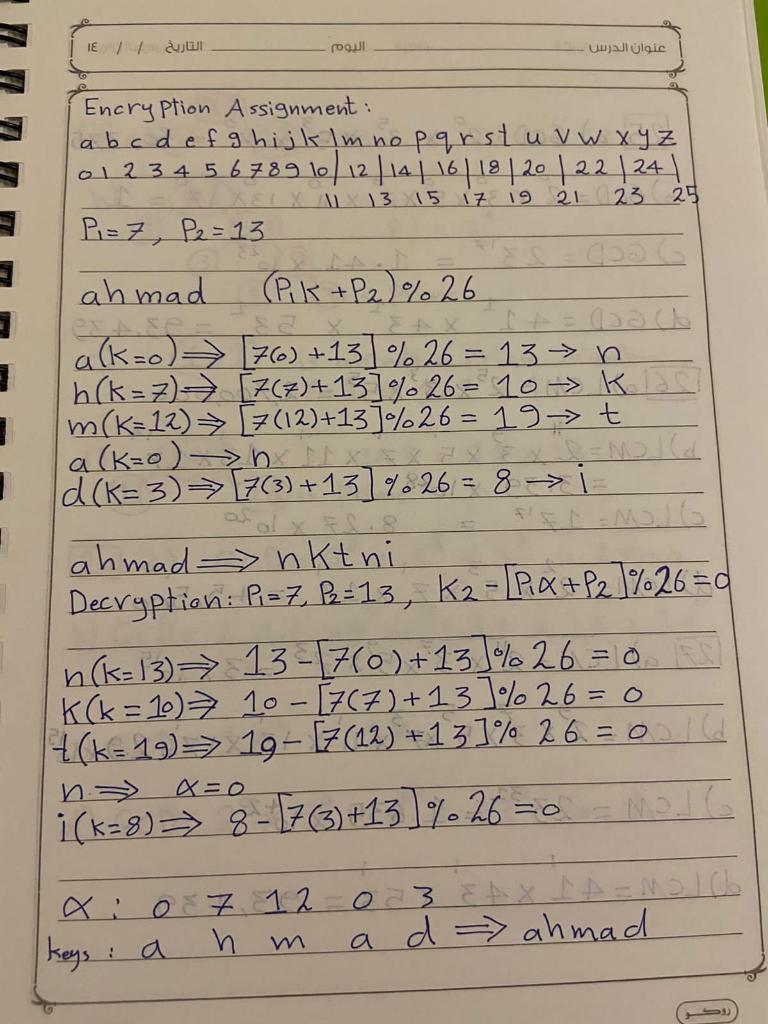 عنوان الدرس اليوم التاريخ / / ١٤
Encryption Assignment:
a b c d e f g h i j k l m n o p q r s t u v w x y z
0 1 2 3 4 5 6 7 8 9 10 | 12 | 14 | 16 | 18 | 20 | 22 | 24 |
11 13 15 17 19 21 23 25
P1=7, P2=13
ahmad (P1K+P2)%26
a(K=0)⇒ [7(0)+13]%26=13→n
h(K=7)⇒ [7(7)+13]%26=10→K
m(K=12)⇒ [7(12)+13]%26=19→t
a(K=0)→n
d(K=3)⇒[7(3)+13]%26=8→i
ahmad⇒nKtni
Decryption: P1=7, P2=13, K2-[P1α+P2]%26=0
n(k=13)⇒ 13-[7(0)+13]%26=0
K(k=10)⇒ 10-[7(7)+13]%26=0
t(k=19)⇒ 19-[7(12)+13]%26=0
n⇒ α=0
i(k=8)⇒ 8-[7(3)+13]%26=0
α: 0 7 12 0 3
keys: a h m a d ⇒ ahmad
روكو